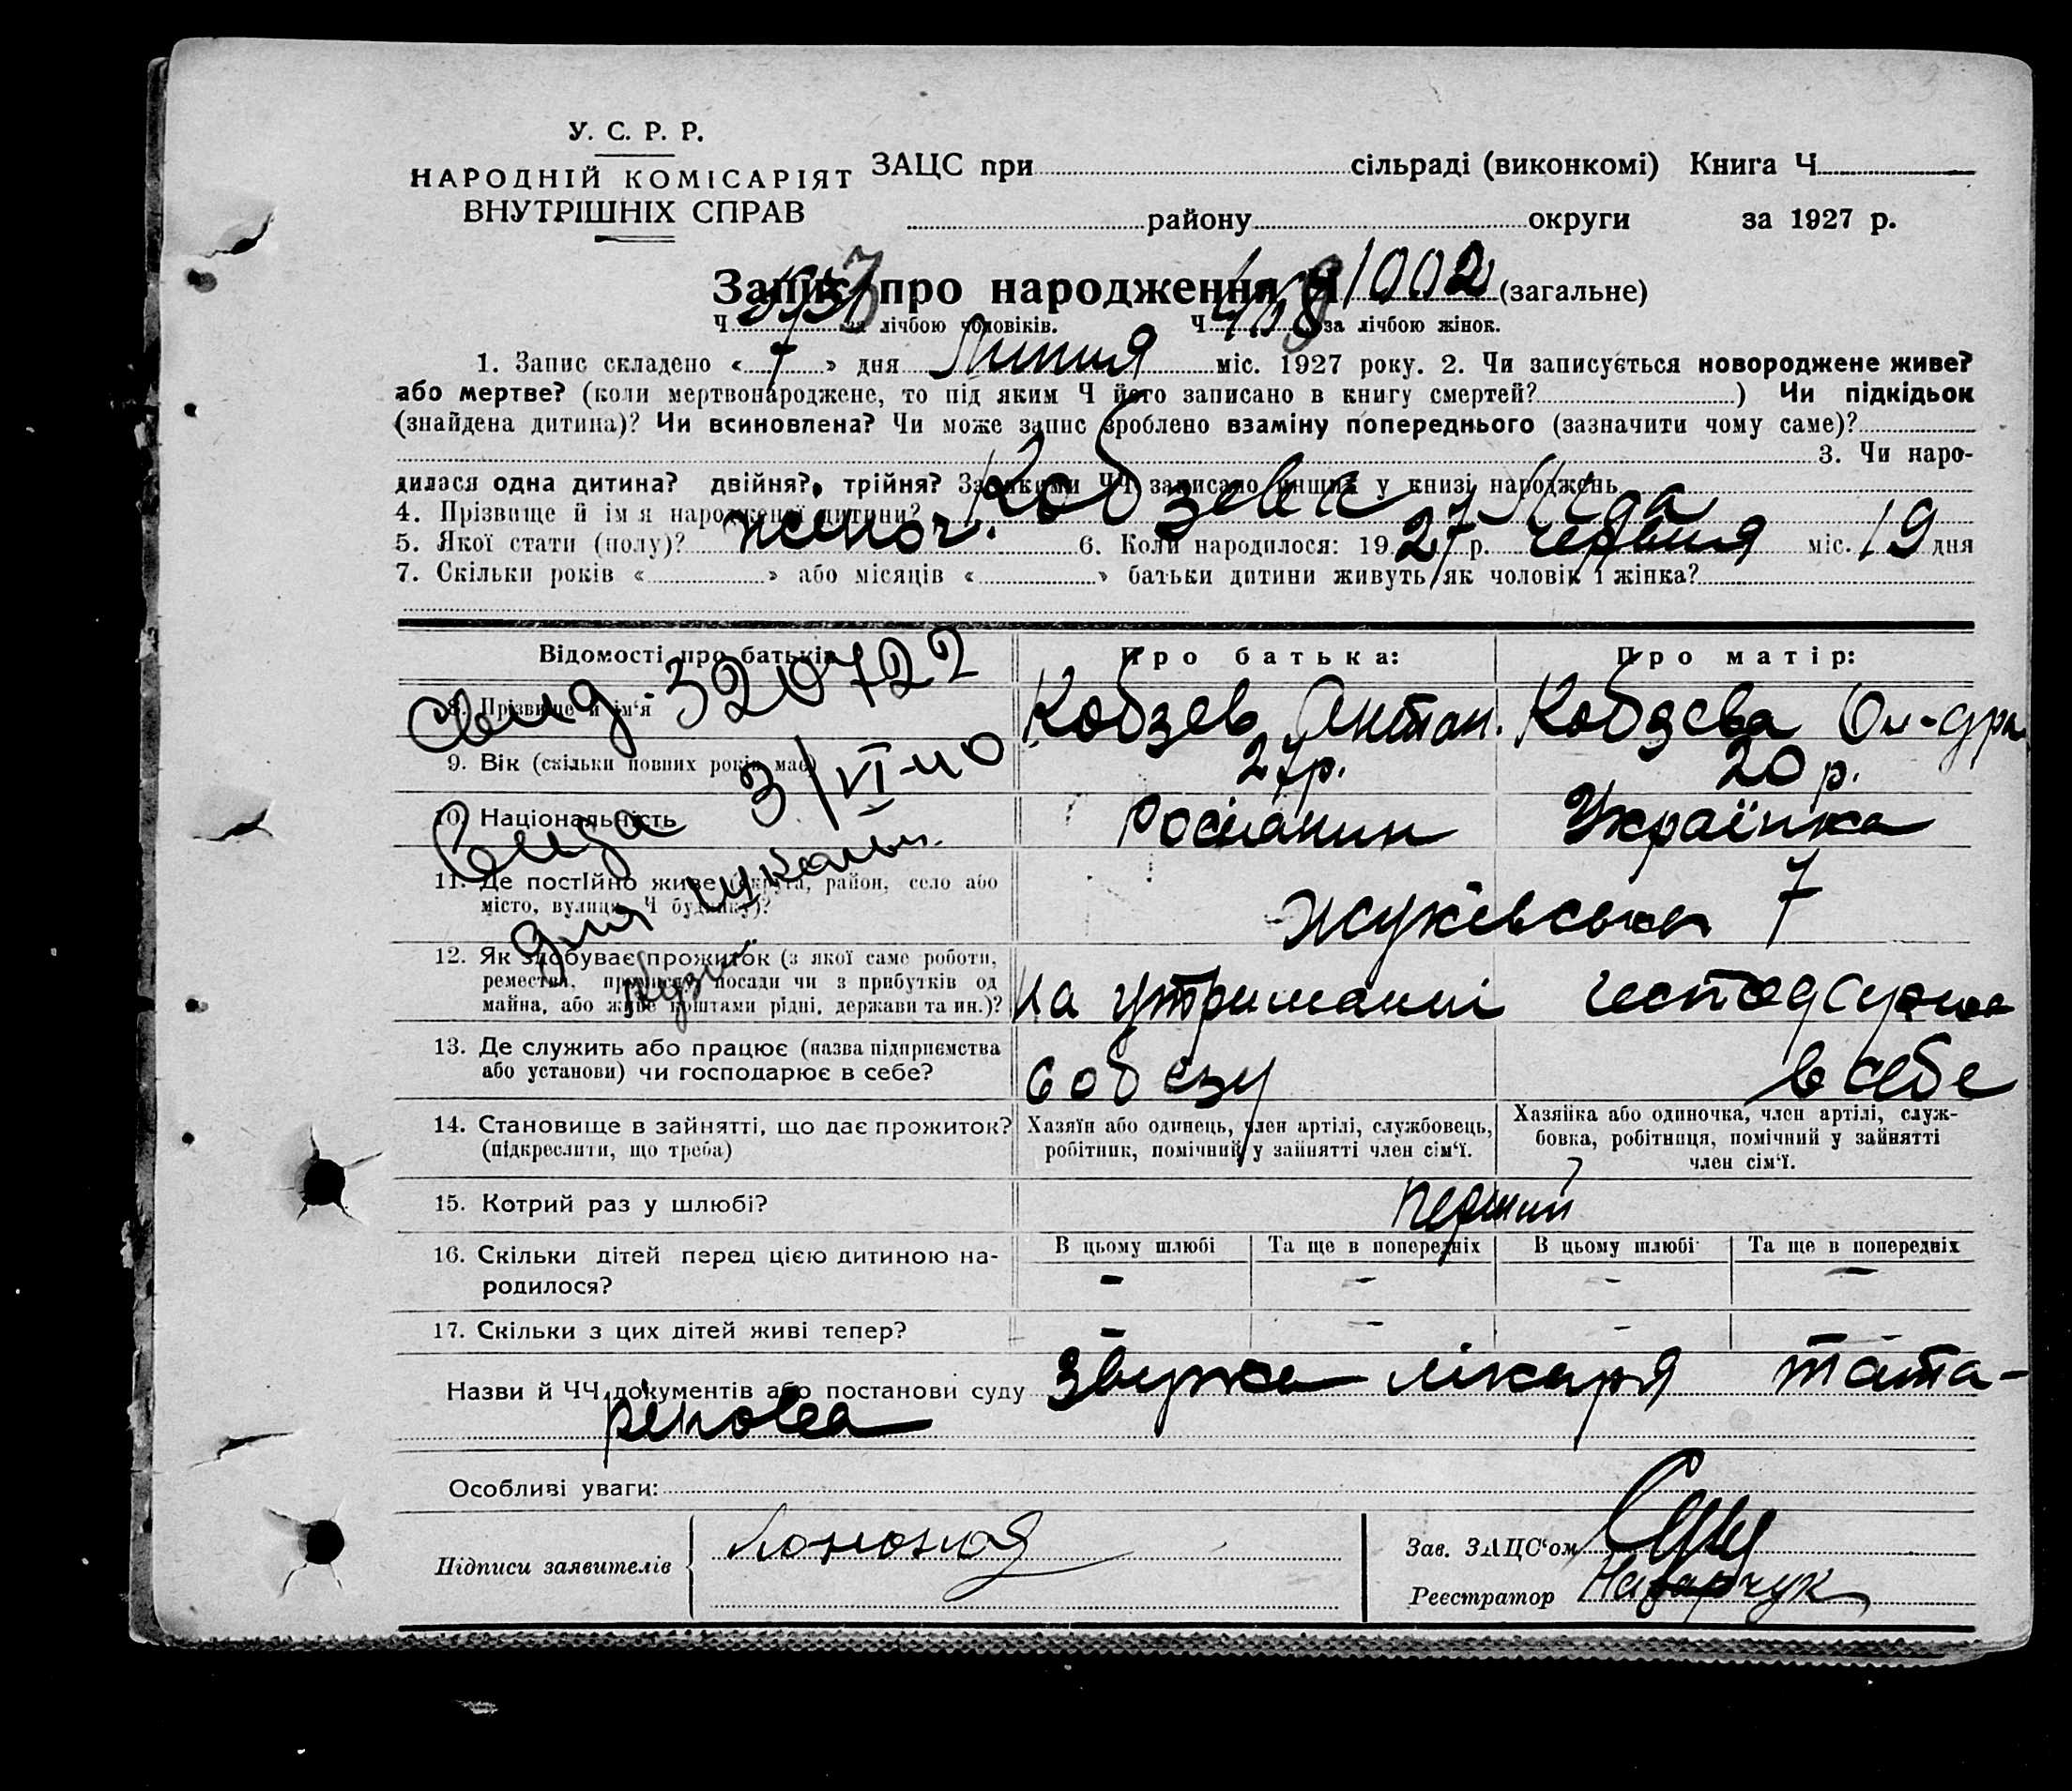 У. С. Р. Р.
НАРОДНІЙ КОМІСАРІЯТ
ВНУТРІШНІХ СПРАВ
ЗАЦС при сільраді (виконкомі) Книга Ч
району округи за 1927 р.
Запис про народження Ч 1002 (загальне)
Ч за лічбою чоловіків. Ч за лічбою жінок.
1. Запис складено « 7 » дня Липня міс. 1927 року. 2. Чи записується новороджене живе?
або мертве? (коли мертвонароджене, то під яким Ч його записано в книгу смертей? ) Чи підкідьок
(знайдена дитина)? Чи всиновлена? Чи може запис зроблено взаміну попереднього (зазначити чому саме)?
3. Чи наро-
дилася одна дитина? двійня? трійня? За якими ЧЧ записано инших у книзі народжень
4. Прізвище й ім'я народженої дитини? Кобзева Ліда
5. Якої стати (полу)? жіноч. 6. Коли народилося: 1927 р. червня міс. 19 дня
7. Скільки років « » або місяців « » батьки дитини живуть як чоловік і жінка?
Відомості про батьків Про батька: Про матір:
8. Прізвище й ім'я Кобзев Антон. Кобзева Ол-дра
9. Вік (скільки повних років має) 27р. 20 р.
10. Національність Росіянин Українка
11. Де постійно живе (округа, район, село або
місто, вулиця, Ч будинку)? Жуківська 7
12. Як здобуває прожиток (з якої саме роботи,
ремества, промислу, посади чи з прибутків од
майна, або живе коштами рідні, держави та ин.)? на утриманні
13. Де служить або працює (назва підприємства
або установи) чи господарює в себе? собезу в себе
14. Становище в зайнятті, що дає прожиток?
(підкреслити, що треба)
Хазяїн або одинець, член артілі, службовець,
робітник, помічний у зайнятті член сім'ї.
Хазяйка або одиночка, член артілі, служ-
бовка, робітниця, помічний у зайнятті
член сім'ї.
15. Котрий раз у шлюбі? перший
16. Скільки дітей перед цією дитиною на-
родилося?
В цьому шлюбі Та ще в попередніх В цьому шлюбі Та ще в попередніх
– – – –
17. Скільки з цих дітей живі тепер? – – –
Назви й ЧЧ документів або постанови суду лікаря Тата-
ренова
Особливі уваги:
Підписи заявителів
Зав. ЗАЦС'ом
Реєстратор Назарчук
Свид 320722
3/VI-40
для